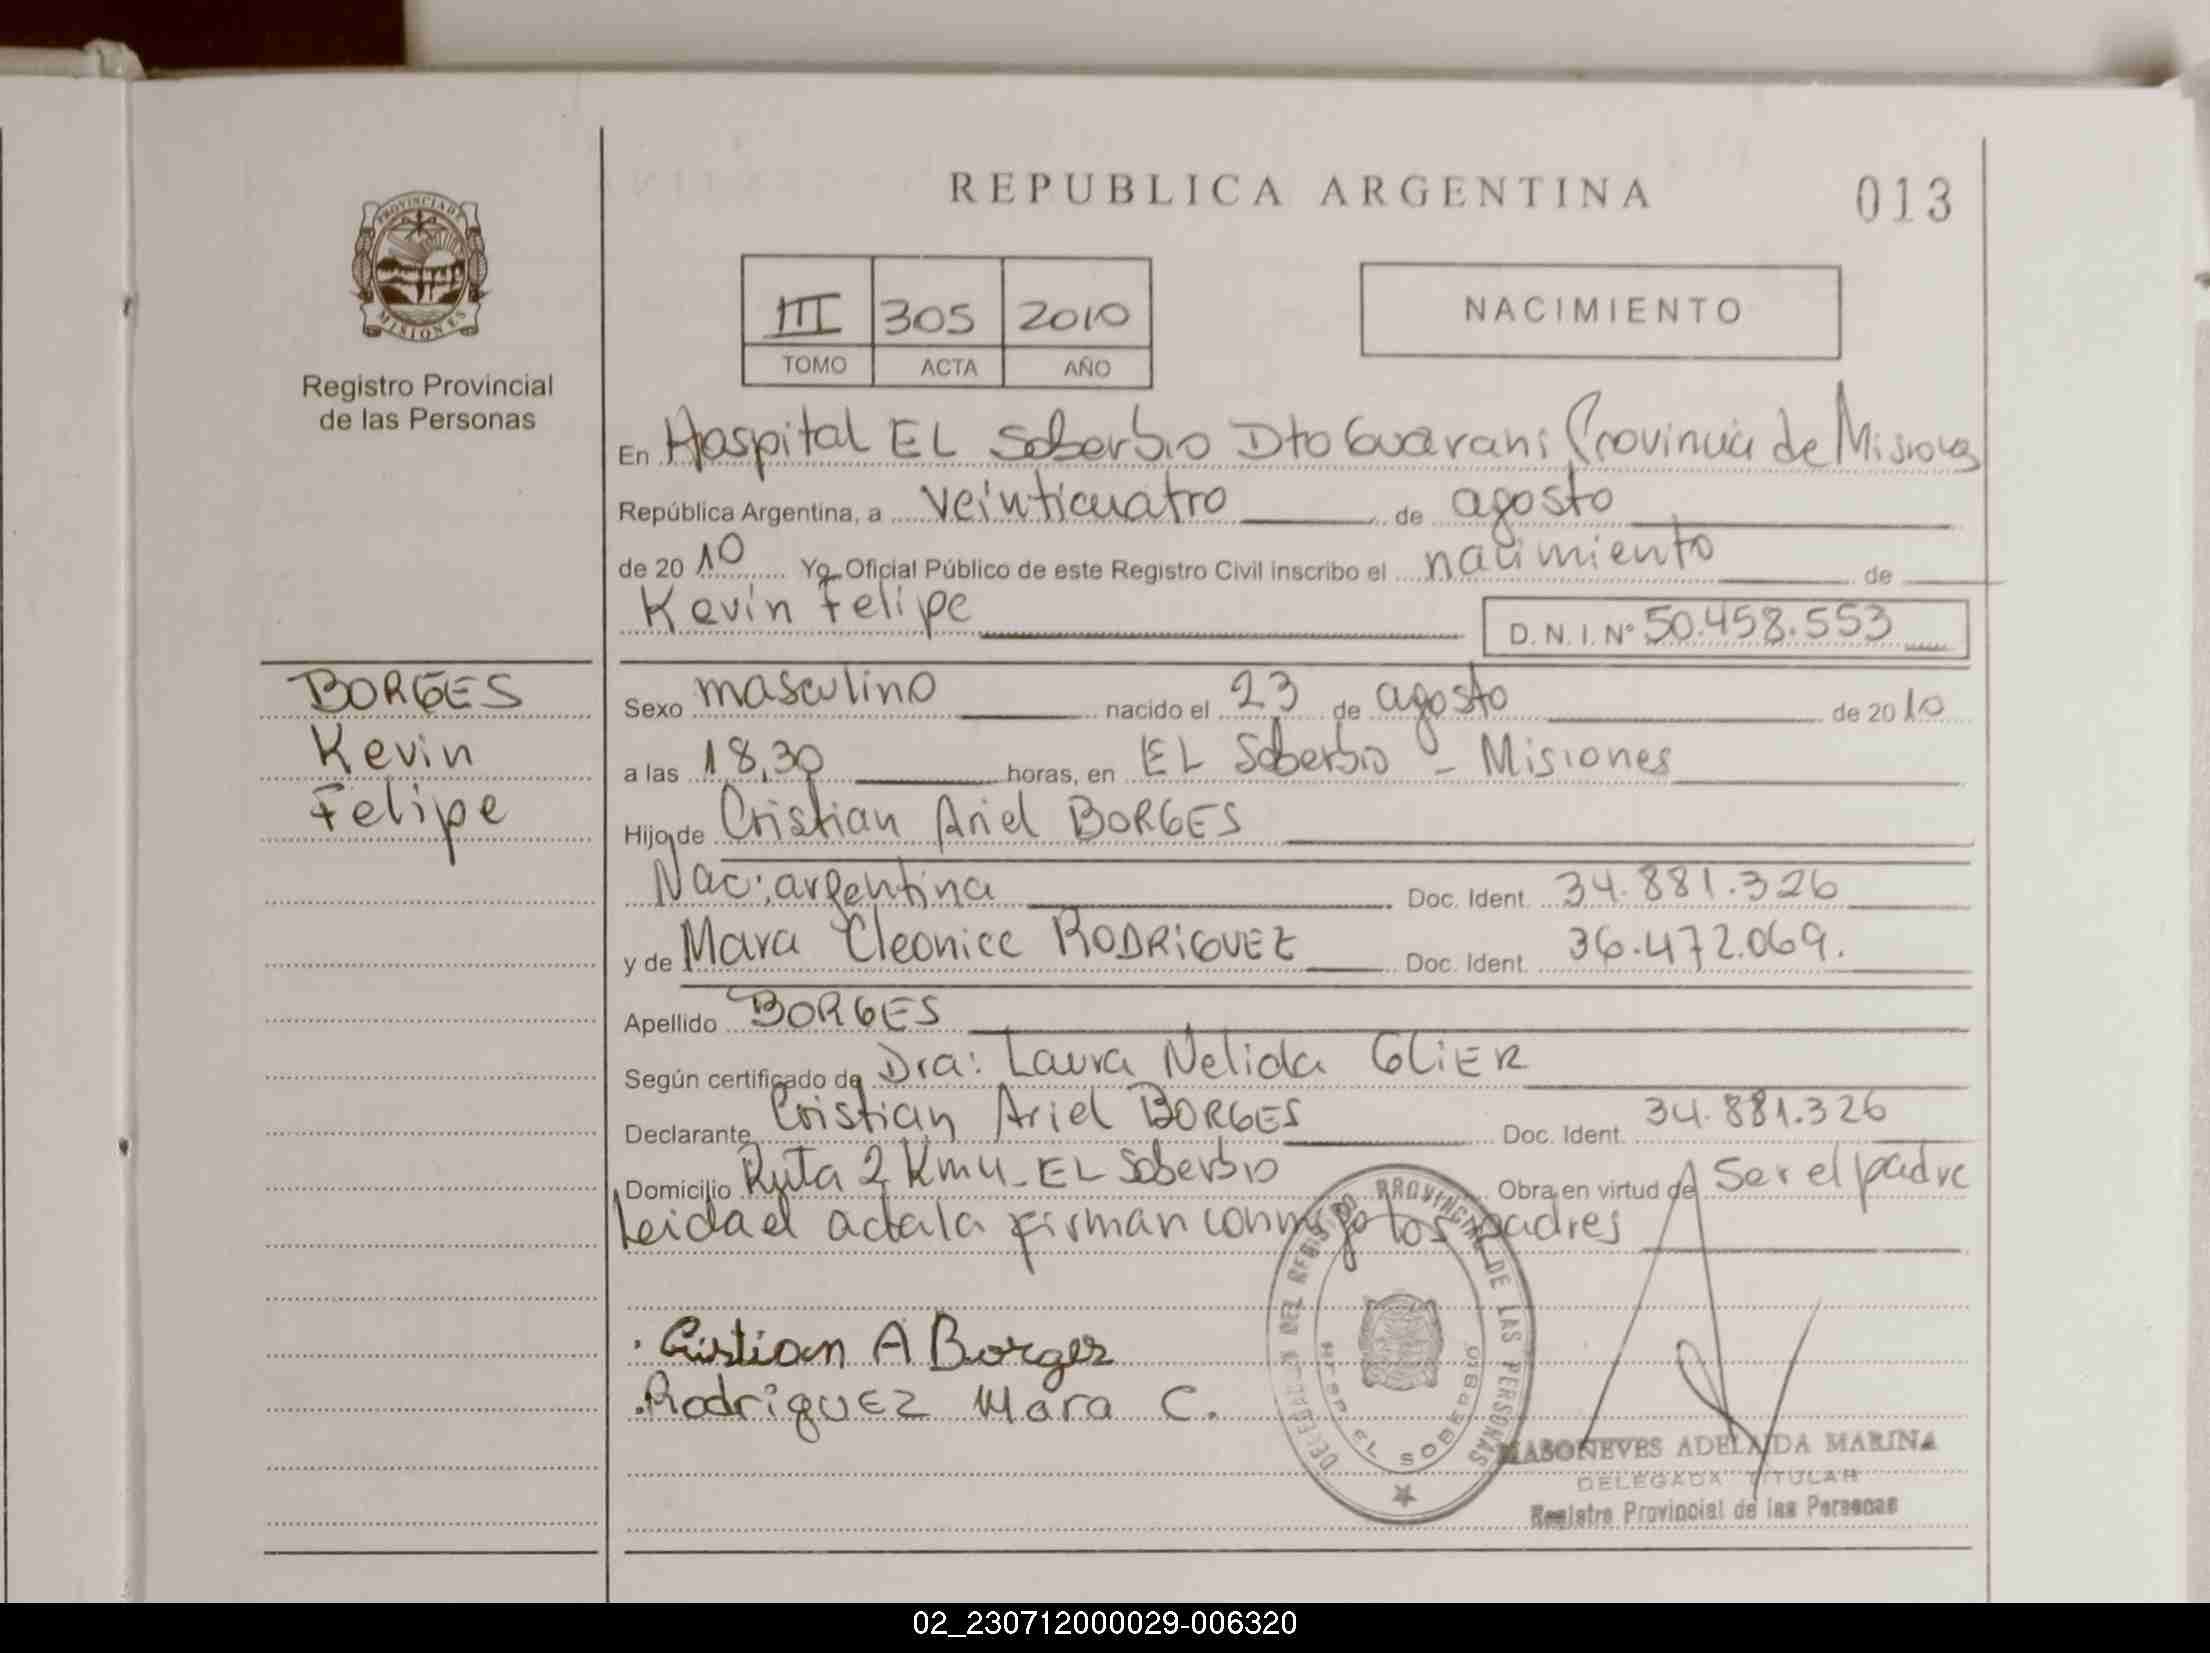 REPUBLICA ARGENTINA
013
PROVINCIA DE
MISIONES
Registro Provincial
de las Personas
III 305 2010
TOMO ACTA AÑO
NACIMIENTO
En Hospital EL Soberbio Dto Guarani Provincia de Misiones
República Argentina, a veinticuatro de agosto
de 20 10 Yo Oficial Público de este Registro Civil inscribo el nacimiento de
Kevin Felipe D. N. I. Nº 50.458.553
BORGES
Kevin
Felipe
Sexo masculino nacido el 23 de agosto de 2010
a las 18,30 horas, en EL Soberbio - Misiones
Hijo de Cristian Ariel BORGES
Nac: argentina Doc. Ident. 34.881.326
y de Mara Cleonice RODRIGUEZ Doc. Ident. 36.472.069.
Apellido BORGES
Según certificado de Dra: Laura Nelida GLIER
Declarante Cristian Ariel BORGES Doc. Ident. 34.881.326
Domicilio Ruta 2 Km 4 - EL Soberbio Obra en virtud de Ser el padre
Leida el acta la firman conmigo los padres
Cristian A Borges
Rodriguez Mara C.
DEL REGISTRO PROVINCIAL DE LAS PERSONAS
EL SOBERBIO
MASONEVES ADELAIDA MARINA
DELEGADA TITULAR
Registro Provincial de las Personas
02_230712000029-006320